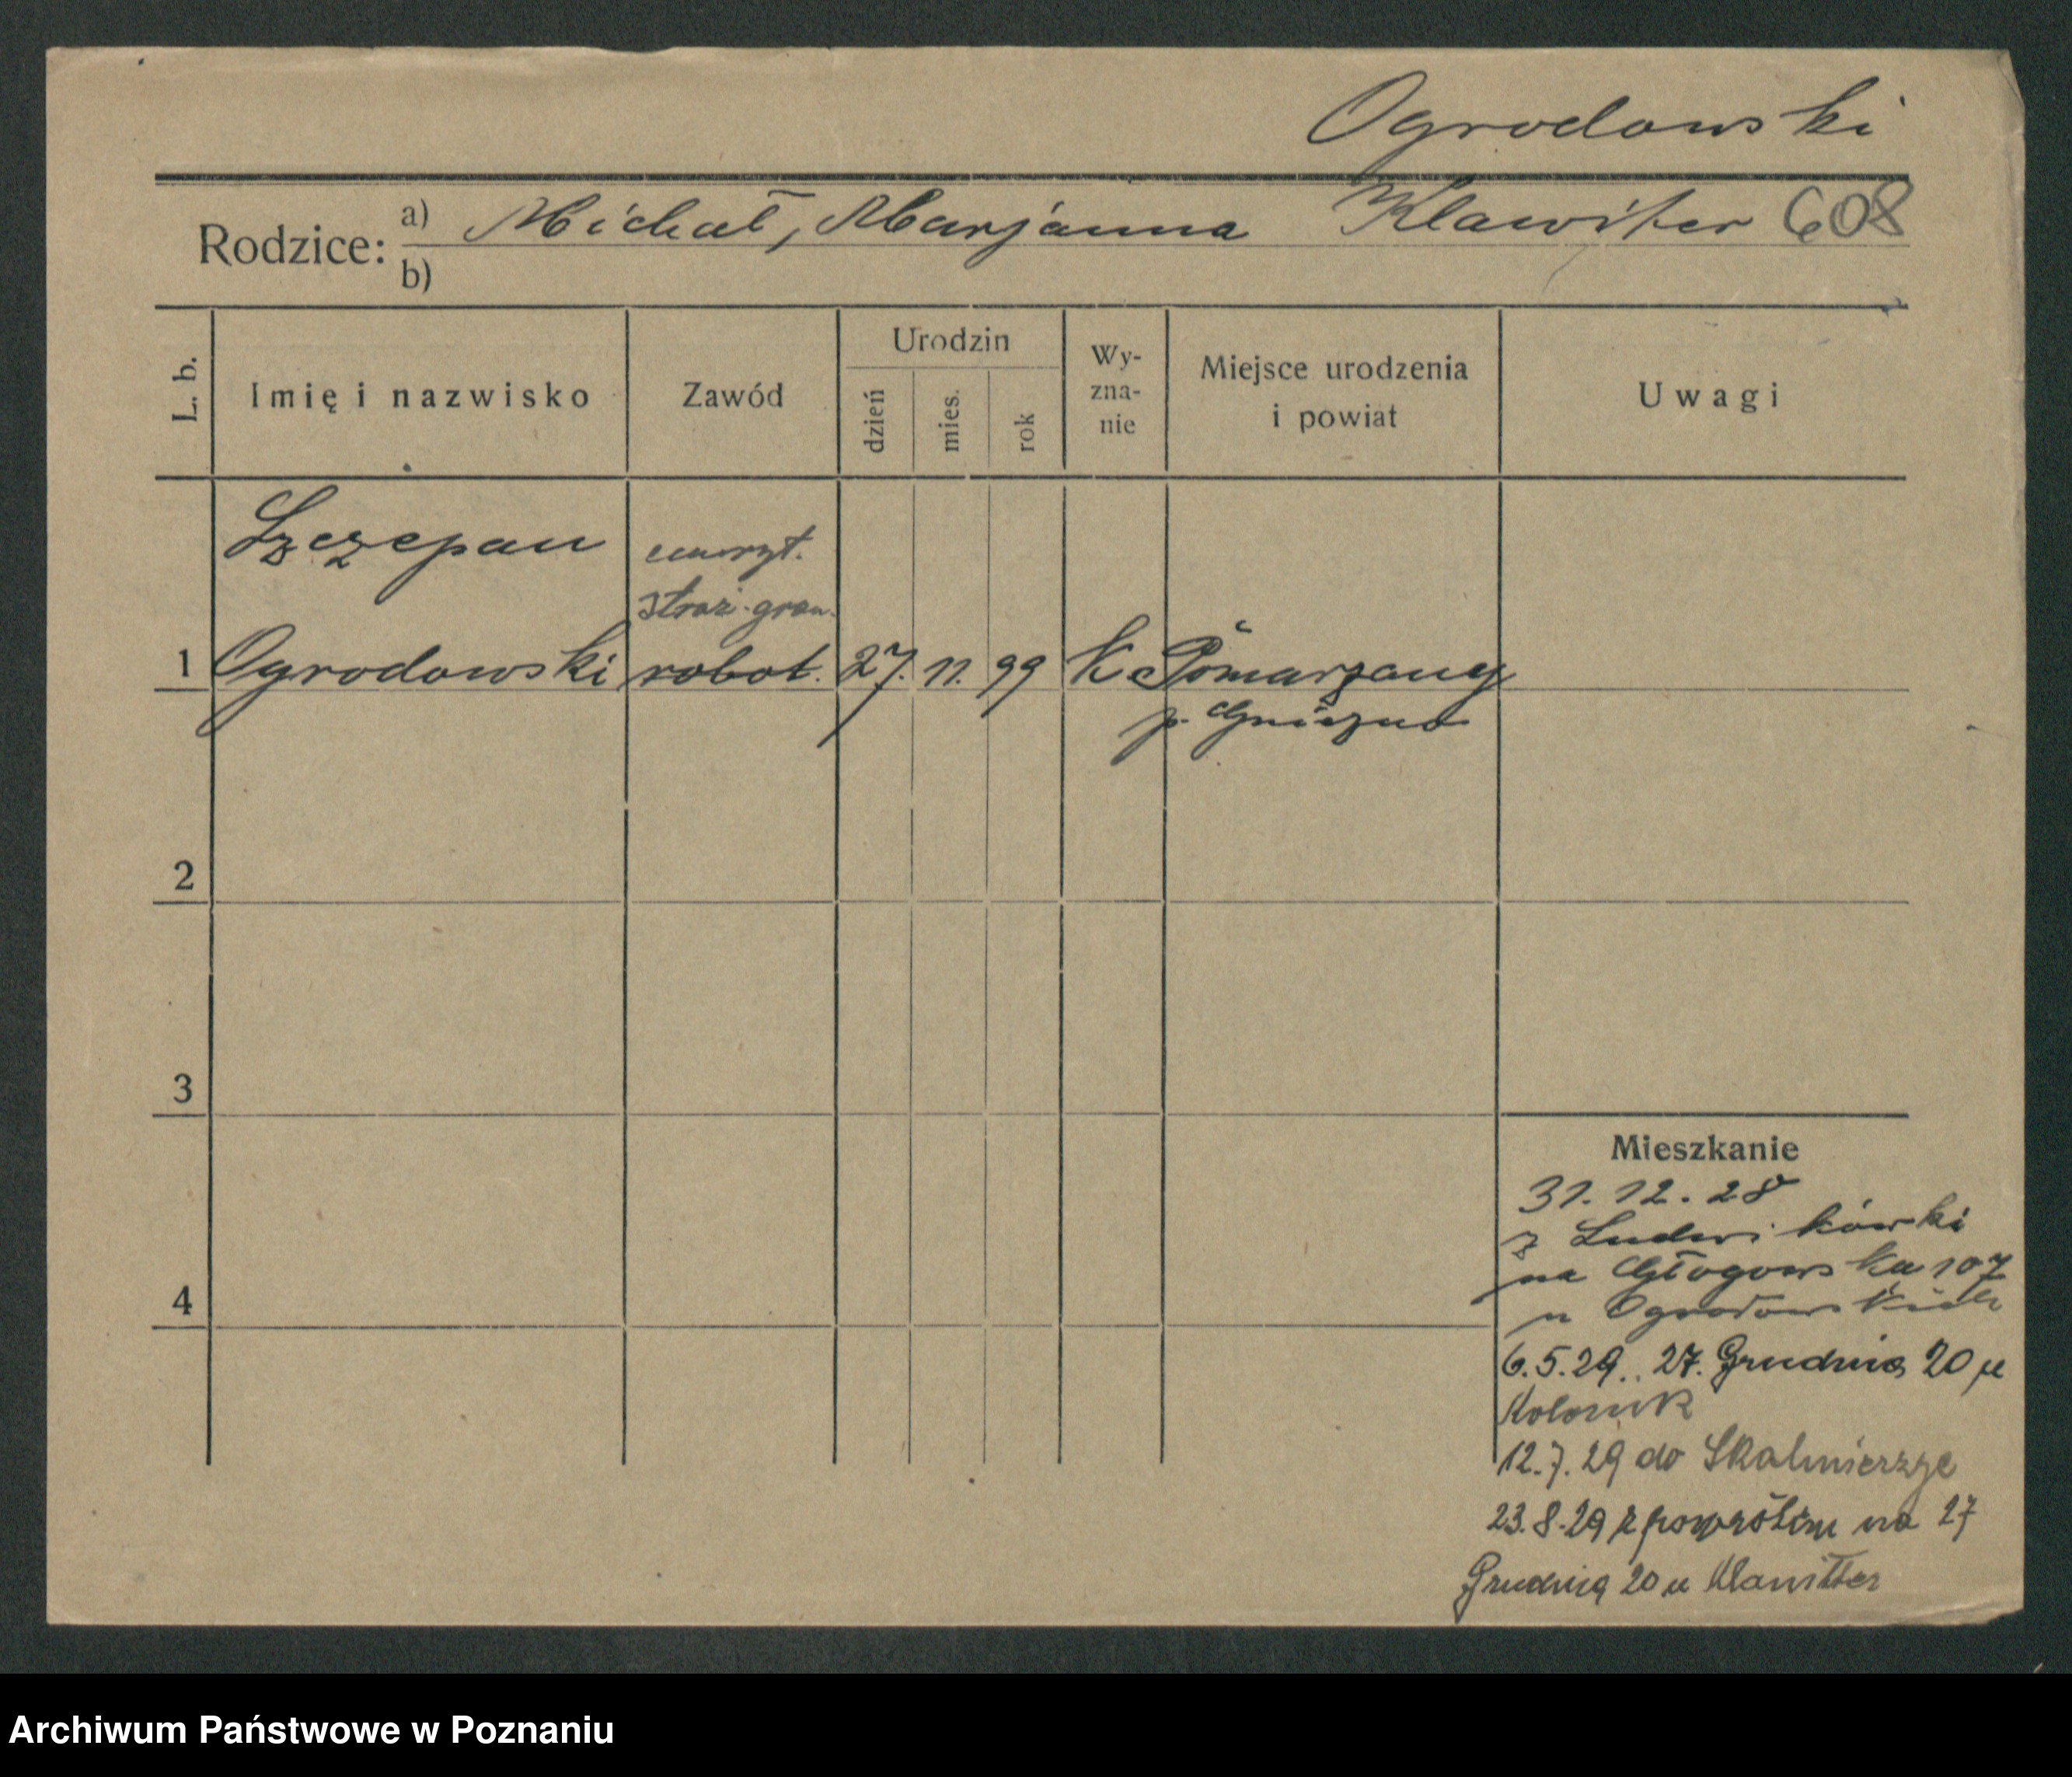 Ogrodowski
Rodzice: a) Michał, Marjanna Klawiter 608
b)
L. b. Imię i nazwisko Zawód Urodzin dzień mies. rok Wy-zna-nie Miejsce urodzenia i powiat Uwagi
Szczepan emeryt.
straż. gran.
1 Ogrodowski robot. 27. 11. 99 K Pomarzany
p. Gniezno
2
3
Mieszkanie
31. 12. 28
z Ludwikówki
na Głogowska 107
4
u Ogrodowskich
6.5.29.. 27. Grudnia 20 u
12.7.29 do Skalmierzyc
23.8.29 z powrotem na 27
Grudnia 20 u Klawitter
Archiwum Państwowe w Poznaniu